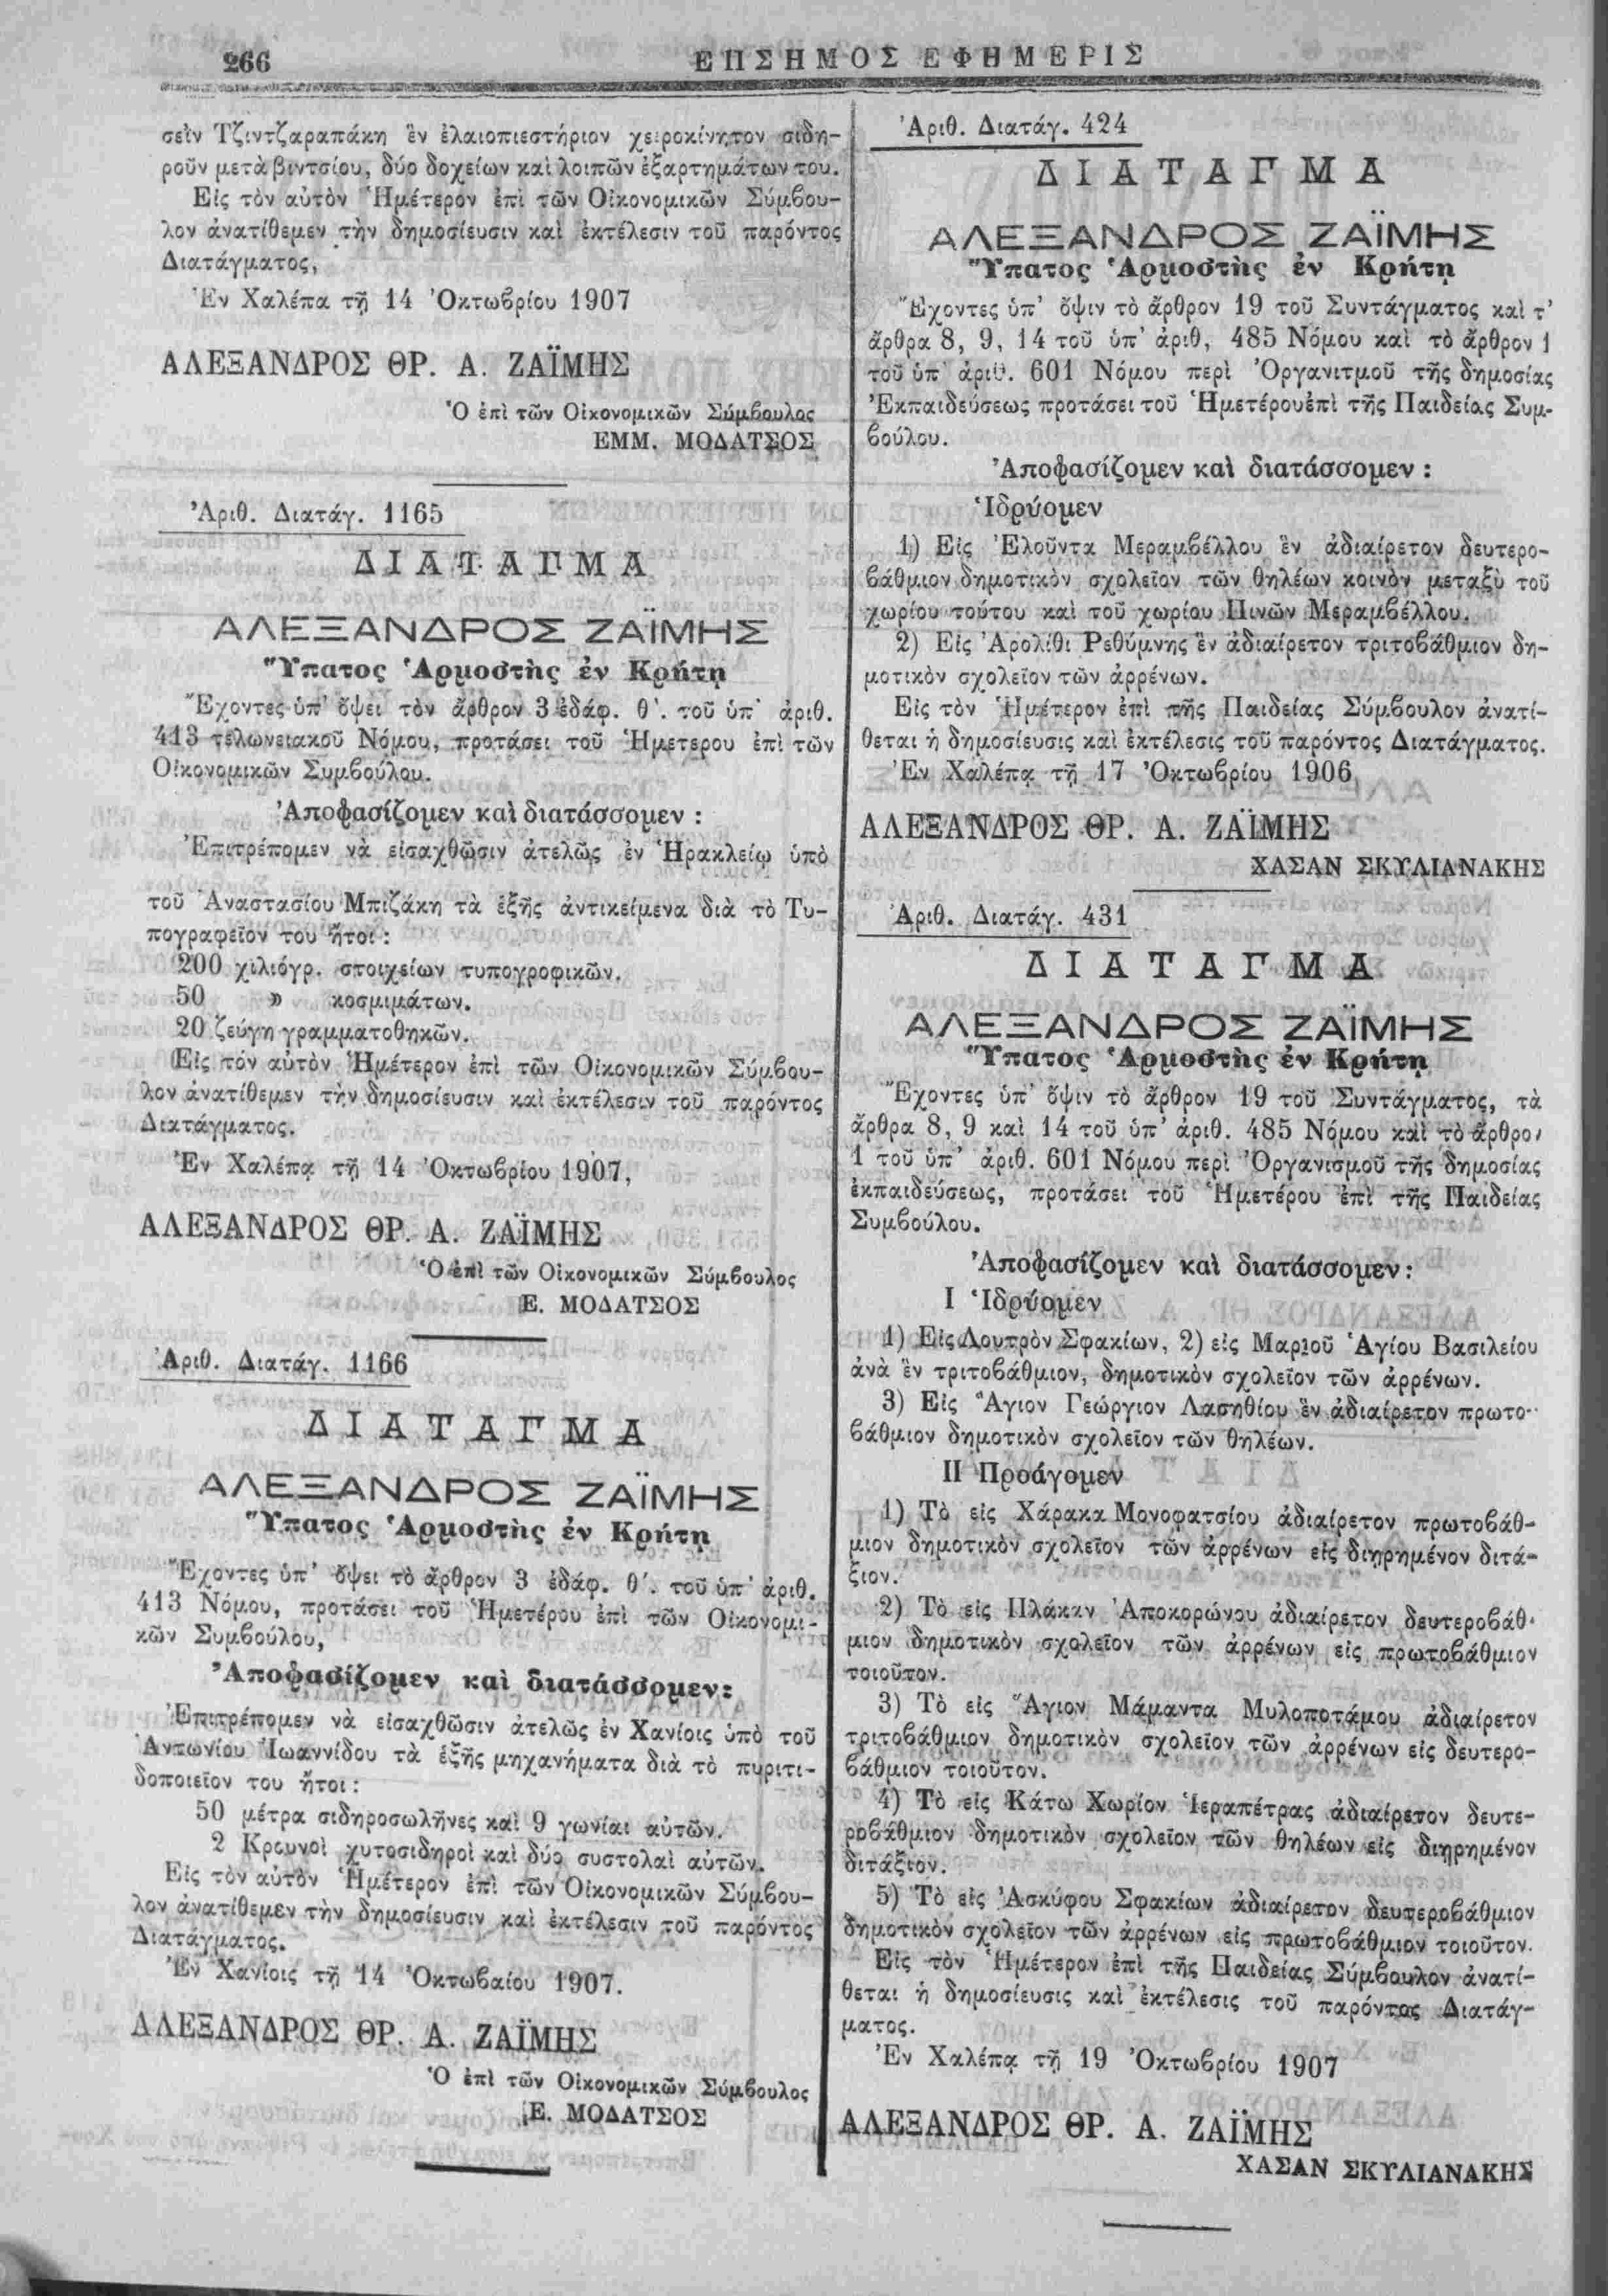 266
ΕΠΣΗΜΟΣ ΕΦΗΜΕΡΙΣ
σεῒν Τζιντζαραπάκη ἓν ἐλαιοπιεστήριον χειροκίνητον σιδη-
ροῦν μετὰ βιντσίου, δύο δοχείων καὶ λοιπῶν ἐξαρτημάτων του.
Εἰς τὸν αὐτὸν Ἡμέτερον ἐπὶ τῶν Οἰκονομικῶν Σύμβου-
λον ἀνατίθεμεν τὴν δημοσίευσιν καὶ ἐκτέλεσιν τοῦ παρόντος
Διατάγματος,
Ἐν Χαλέπα τῇ 14 Ὀκτωβρίου 1907
ΑΛΕΞΑΝΔΡΟΣ ΘΡ. Α. ΖΑΪΜΗΣ
Ὁ ἐπὶ τῶν Οἰκονομικῶν Σύμβουλος
ΕΜΜ. ΜΟΔΑΤΣΟΣ
Ἀριθ. Διατάγ. 1165
ΔΙΑΤΑΓΜΑ
ΑΛΕΞΑΝΔΡΟΣ ΖΑΪΜΗΣ
Ὕπατος Ἁρμοστὴς ἐν Κρήτῃ
Ἔχοντες ὑπ' ὄψει τὸν ἄρθρον 3 ἐδάφ. θ'. τοῦ ὑπ' ἀριθ.
413 τελωνειακοῦ Νόμου, προτάσει τοῦ Ἡμετερου ἐπὶ τῶν
Οἰκονομικῶν Συμβούλου.
Ἀποφασίζομεν καὶ διατάσσομεν :
Ἐπιτρέπομεν νὰ εἰσαχθῶσιν ἀτελῶς ἐν Ἡρακλείῳ ὑπὸ
τοῦ Ἀναστασίου Μπιζάκη τὰ ἑξῆς ἀντικείμενα διὰ τὸ Τυ-
πογραφεῖον του ἤτοι :
200 χιλιόγρ. στοιχείων τυπογροφικῶν.
50 » κοσμιμάτων.
20 ζεύγη γραμματοθηκῶν.
Εἰς τόν αὐτὸν Ἡμέτερον ἐπὶ τῶν Οἰκονομικῶν Σύμβου-
λον ἀνατίθεμεν τὴν δημοσίευσιν καὶ ἐκτέλεσιν τοῦ παρόντος
Διατάγματος.
Ἐν Χαλέπᾳ τῇ 14 Ὀκτωβρίου 1907,
ΑΛΕΞΑΝΔΡΟΣ ΘΡ. Α. ΖΑΪΜΗΣ
Ὁ ἐπὶ τῶν Οἰκονομικῶν Σύμβουλος
Ε. ΜΟΔΑΤΣΟΣ
Ἀριθ. Διατάγ. 1166
ΔΙΑΤΑΓΜΑ
ΑΛΕΞΑΝΔΡΟΣ ΖΑΪΜΗΣ
Ὕπατος Ἁρμοστὴς ἐν Κρήτῃ
Ἔχοντες ὑπ' ὄψει τὸ ἄρθρον 3 ἐδάφ. θ'. τοῦ ὑπ' ἀριθ.
413 Νόμου, προτάσει τοῦ Ἡμετέρου ἐπὶ τῶν Οἰκονομι-
κῶν Συμβούλου,
Ἀποφασίζομεν καὶ διατάσσομεν:
Ἐπιτρέπομεν νὰ εἰσαχθῶσιν ἀτελῶς ἐν Χανίοις ὑπὸ τοῦ
Ἀντωνίου Ἰωαννίδου τὰ ἑξῆς μηχανήματα διὰ τὸ πυριτι-
δοποιεῖον του ἤτοι :
50 μέτρα σιδηροσωλῆνες καὶ 9 γωνίαι αὐτῶν.
2 Κρουνοὶ χυτοσιδηροῖ καὶ δύο συστολαὶ αὐτῶν.
Εἰς τὸν αὐτὸν Ἡμέτερον ἐπὶ τῶν Οἰκονομικῶν Σύμβου-
λον ἀνατίθεμεν τὴν δημοσίευσιν καὶ ἐκτέλεσιν τοῦ παρόντος
Διατάγματος.
Ἐν Χανίοις τῇ 14 Ὀκτωβαίου 1907.
ΑΛΕΞΑΝΔΡΟΣ ΘΡ. Α. ΖΑΪΜΗΣ
Ὁ ἐπὶ τῶν Οἰκονομικῶν Σύμβουλος
Ε. ΜΟΔΑΤΣΟΣ
Ἀριθ. Διατάγ. 424
ΔΙΑΤΑΓΜΑ
ΑΛΕΞΑΝΔΡΟΣ ΖΑΪΜΗΣ
Ὕπατος Ἁρμοστὴς ἐν Κρήτῃ
Ἔχοντες ὑπ' ὄψιν τὸ ἄρθρον 19 τοῦ Συντάγματος καὶ τ'
ἄρθρα 8, 9, 14 τοῦ ὑπ' ἀριθ, 485 Νόμου καὶ τὸ ἄρθρον 1
τοῦ ὑπ' ἀριθ. 601 Νόμου περὶ Ὀργανιτμοῦ τῆς δημοσίας
Ἐκπαιδεύσεως προτάσει τοῦ Ἡμετέρουἐπὶ τῆς Παιδείας Συμ-
βούλου.
Ἀποφασίζομεν καὶ διατάσσομεν :
Ἱδρύομεν
1) Εἰς Ἐλοῦντα Μεραμβέλλου ἓν ἀδιαίρετον δευτερο-
βάθμιον δημοτικὸν σχολεῖον τῶν θηλέων κοινὸν μεταξὺ τοῦ
χωρίου τούτου καὶ τοῦ χωρίου Πινῶν Μεραμβέλλου.
2) Εἰς Ἀρολίθι Ρεθύμνης ἓν ἀδιαίρετον τριτοβάθμιον δη-
μοτικὸν σχολεῖον τῶν ἀρρένων.
Εἰς τὸν Ἡμέτερον ἐπὶ τῆς Παιδείας Σύμβουλον ἀνατί-
θεται ἡ δημοσίευσις καὶ ἐκτέλεσις τοῦ παρόντος Διατάγματος.
Ἐν Χαλέπᾳ τῇ 17 Ὀκτωβρίου 1906
ΑΛΕΞΑΝΔΡΟΣ ΘΡ. Α. ΖΑΪΜΗΣ
ΧΑΣΑΝ ΣΚΥΛΙΑΝΑΚΗΣ
Ἀριθ. Διατάγ. 431
ΔΙΑΤΑΓΜΑ
ΑΛΕΞΑΝΔΡΟΣ ΖΑΪΜΗΣ
Ὕπατος Ἁρμοστὴς ἐν Κρήτῃ
Ἔχοντες ὑπ' ὄψιν τὸ ἄρθρον 19 τοῦ Συντάγματος, τὰ
ἄρθρα 8, 9 καὶ 14 τοῦ ὑπ' ἀριθ. 485 Νόμου καὶ τὸ ἄρθρον
1 τοῦ ὑπ' ἀριθ. 601 Νόμου περὶ Ὀργανισμοῦ τῆς δημοσίας
ἐκπαιδεύσεως, προτάσει τοῦ Ἡμετέρου ἐπὶ τῆς Παιδείας
Συμβούλου.
Ἀποφασίζομεν καὶ διατάσσομεν:
Ι Ἱδρύομεν
1) Εἰς Λουτρὸν Σφακίων, 2) εἰς Μαριοῦ Ἁγίου Βασιλείου
ἀνὰ ἓν τριτοβάθμιον, δημοτικὸν σχολεῖον τῶν ἀρρένων.
3) Εἰς Ἅγιον Γεώργιον Λασηθίου ἓν ἀδιαίρετον πρωτο-
βάθμιον δημοτικὸν σχολεῖον τῶν θηλέων.
ΙΙ Προάγομεν
1) Τὸ εἰς Χάρακα Μονοφατσίου ἀδιαίρετον πρωτοβάθ-
μιον δημοτικὸν σχολεῖον τῶν ἀρρένων εἰς διῃρημένον διτά-
ξιον.
2) Τὸ εἰς Πλάκαν Ἀποκορώνου ἀδιαίρετον δευτεροβάθ-
μιον δημοτικὸν σχολεῖον τῶν ἀρρένων εἰς πρωτοβάθμιον
τοιοῦτον.
3) Τὸ εἰς Ἅγιον Μάμαντα Μυλοποτάμου ἀδιαίρετον
τριτοβάθμιον δημοτικὸν σχολεῖον τῶν ἀρρένων εἰς δευτερο-
βάθμιον τοιοῦτον.
4) Τὸ εἰς Κάτω Χωρίον Ἱεραπέτρας ἀδιαίρετον δευτε-
ροβάθμιον δημοτικὸν σχολεῖον τῶν θηλέων εἰς διῃρημένον
διτάξιον.
5) Τὸ εἰς Ἀσκύφου Σφακίων ἀδιαίρετον δευτεροβάθμιον
δημοτικὸν σχολεῖον τῶν ἀρρένων εἰς πρωτοβάθμιον τοιοῦτον.
Εἰς τὸν Ἡμέτερον ἐπὶ τῆς Παιδείας Σύμβουλον ἀνατί-
θεται ἡ δημοσίευσις καὶ ἐκτέλεσις τοῦ παρόντος Διατάγ-
ματος.
Ἐν Χαλέπᾳ τῇ 19 Ὀκτωβρίου 1907
ΑΛΕΞΑΝΔΡΟΣ ΘΡ. Α. ΖΑΪΜΗΣ
ΧΑΣΑΝ ΣΚΥΛΙΑΝΑΚΗΣ